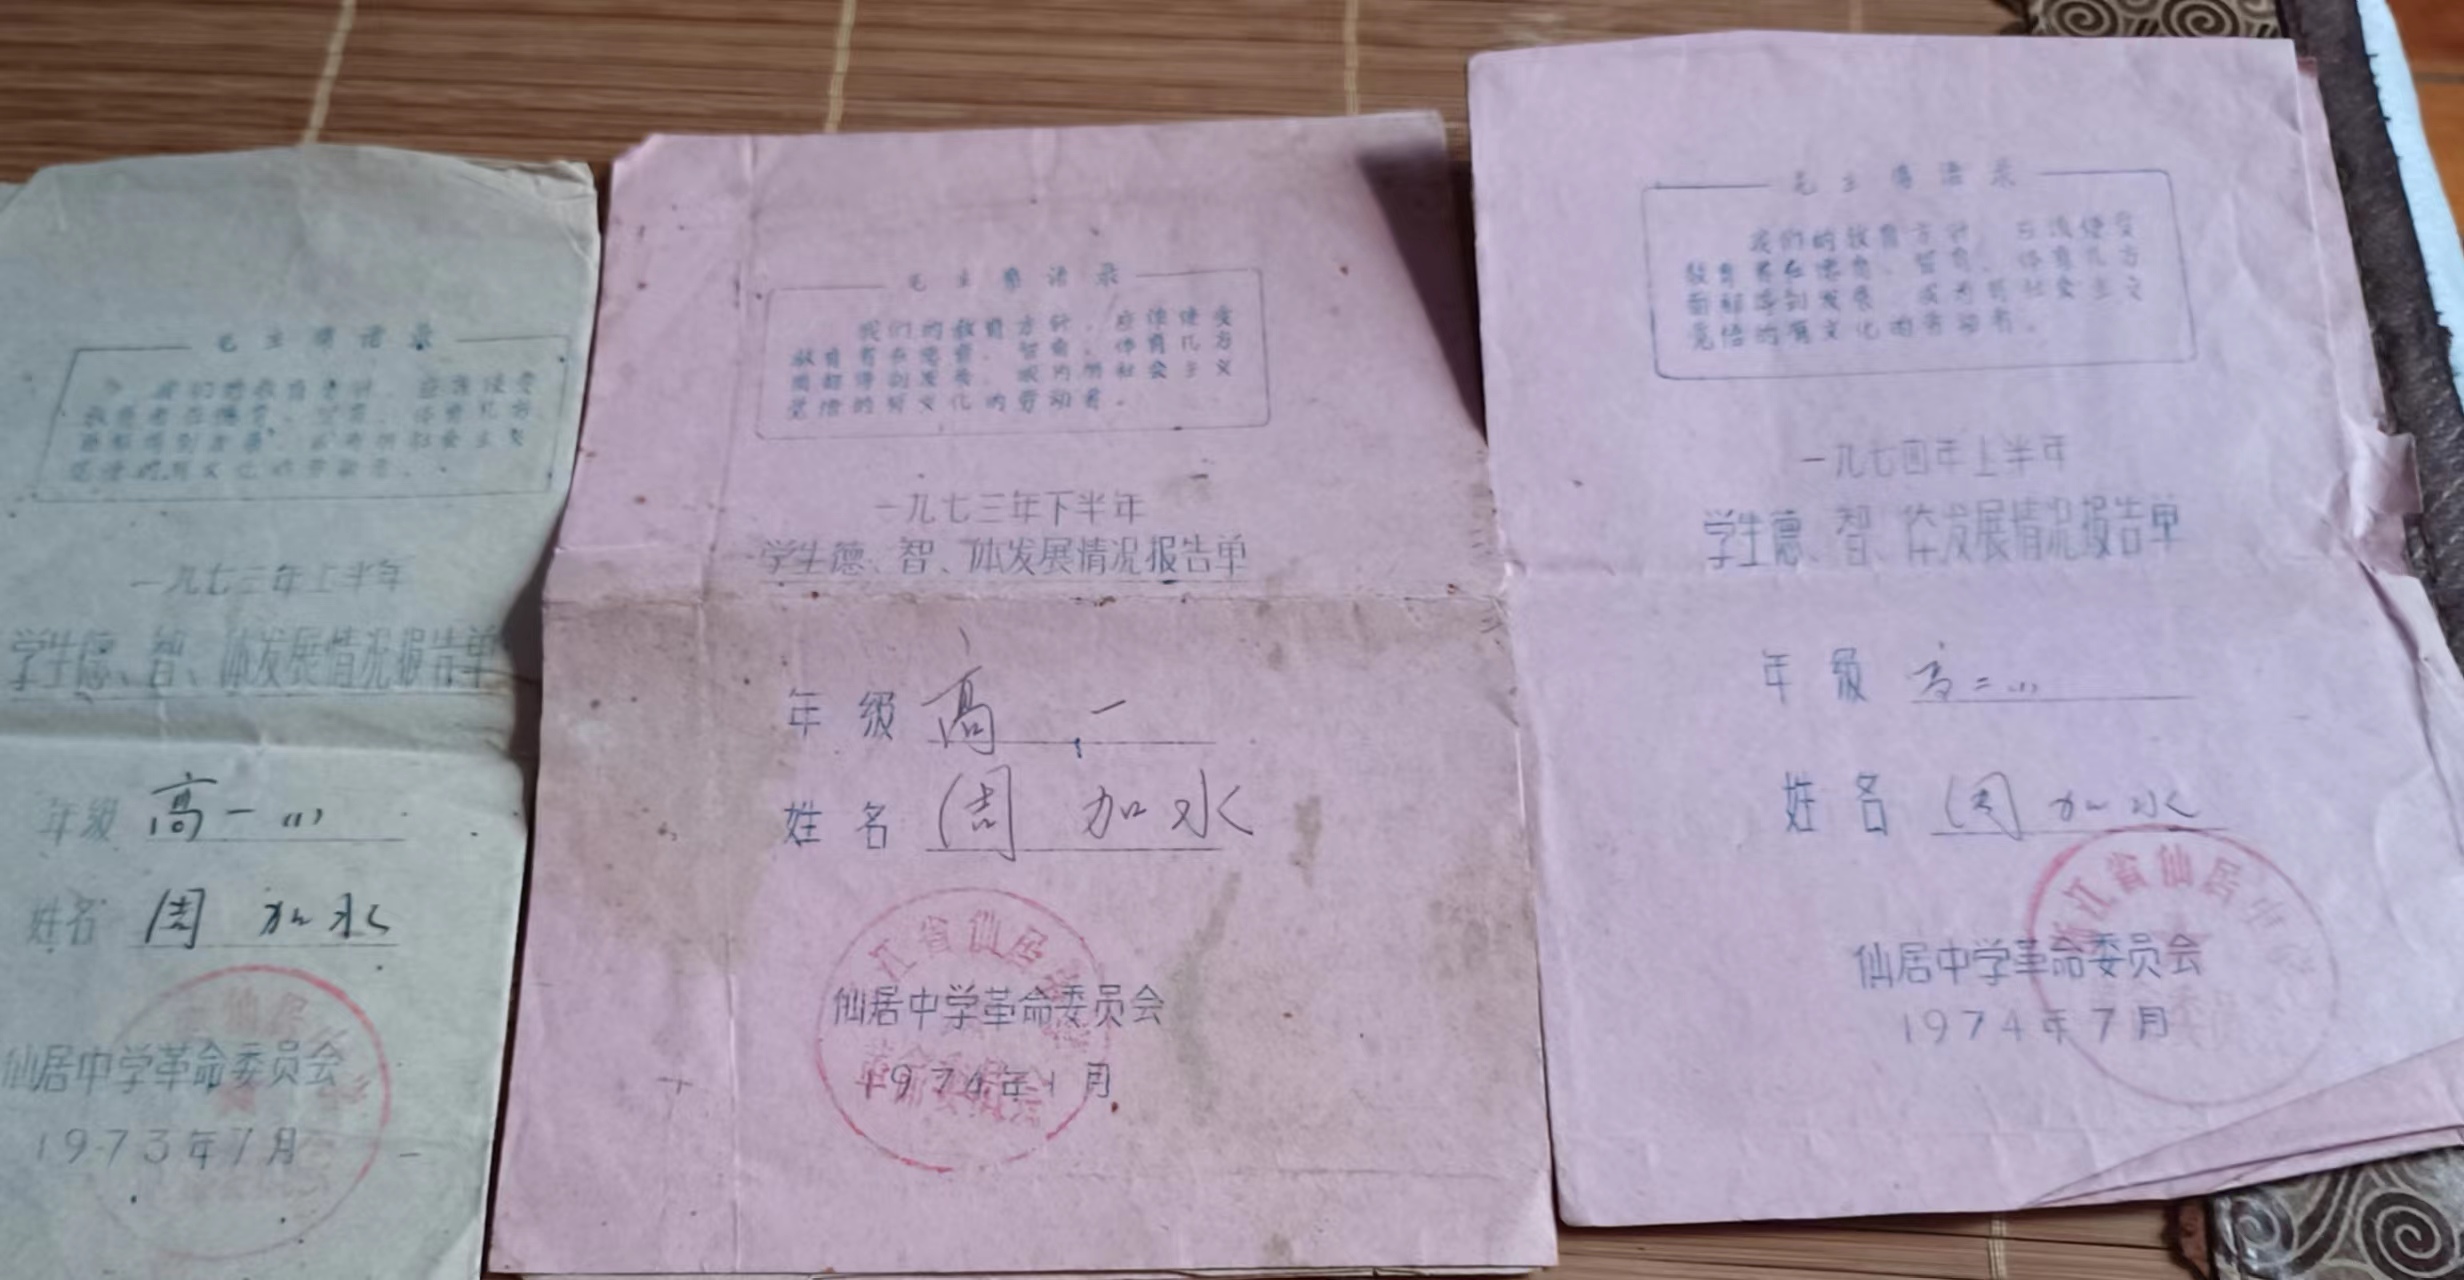 毛主席语录
我们的教育方针，应该使受
教育者在德育、智育、体育几方
面都得到发展，成为有社会主义
觉悟的有文化的劳动者。
一九七三年上半年
学生德、智、体发展情况报告单
年级 高一(1)
姓名 周加水
仙居中学革命委员会
1973年7月
毛主席语录
我们的教育方针，应该使受
教育者在德育、智育、体育几方
面都得到发展，成为有社会主义
觉悟的有文化的劳动者。
一九七三年下半年
学生德、智、体发展情况报告单
年级 高一
姓名 周加水
江省仙居
仙居中学革命委员会
1974年1月
毛主席语录
我们的教育方针，应该使受
教育者在德育、智育、体育几方
面都得到发展，成为有社会主义
觉悟的有文化的劳动者。
一九七四年上半年
学生德、智、体发展情况报告单
年级 高二(1)
姓名 周加水
江省仙居中
仙居中学革命委员会
1974年7月